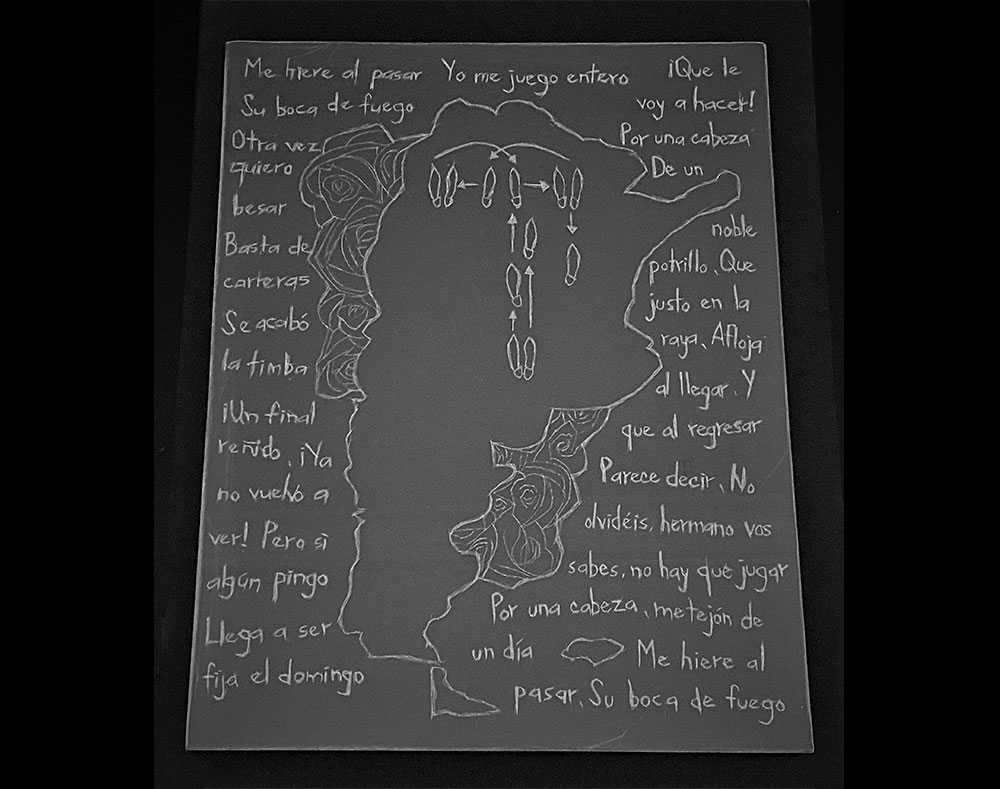 Me hiere al pasar
Su boca de fuego
Otra vez
quiero
besar
Basta de
carteras
Se acabó
la timba
¡Un final
reñido, ¡Ya
no vuelvó a
ver! Pero si
algún pingo
Llega a ser
fija el domingo
Yo me juego entero
¡Que le
voy a hacer!
Por una cabeza
De un
noble
potrillo, Que
justo en la
raya, Afloja
al llegar, Y
que al regresar
Parece decir, No
olvidéis, hermano vos
sabes, no hay que jugar
Por una cabeza, metejón de
un día
Me hiere al
pasar, Su boca de fuego